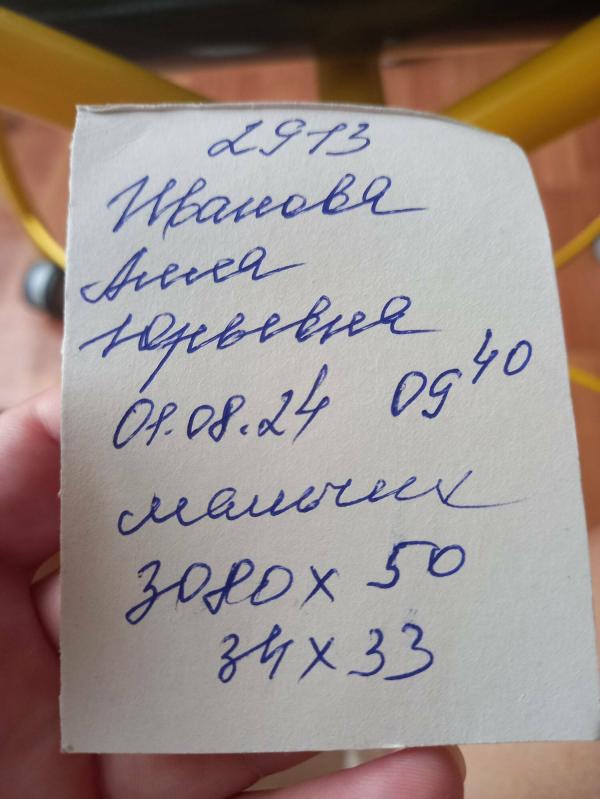 2913
Иванова
Анна
Юрьевна
01.08.24 09⁴⁰
мальчик
3080 х 50
34 х 33